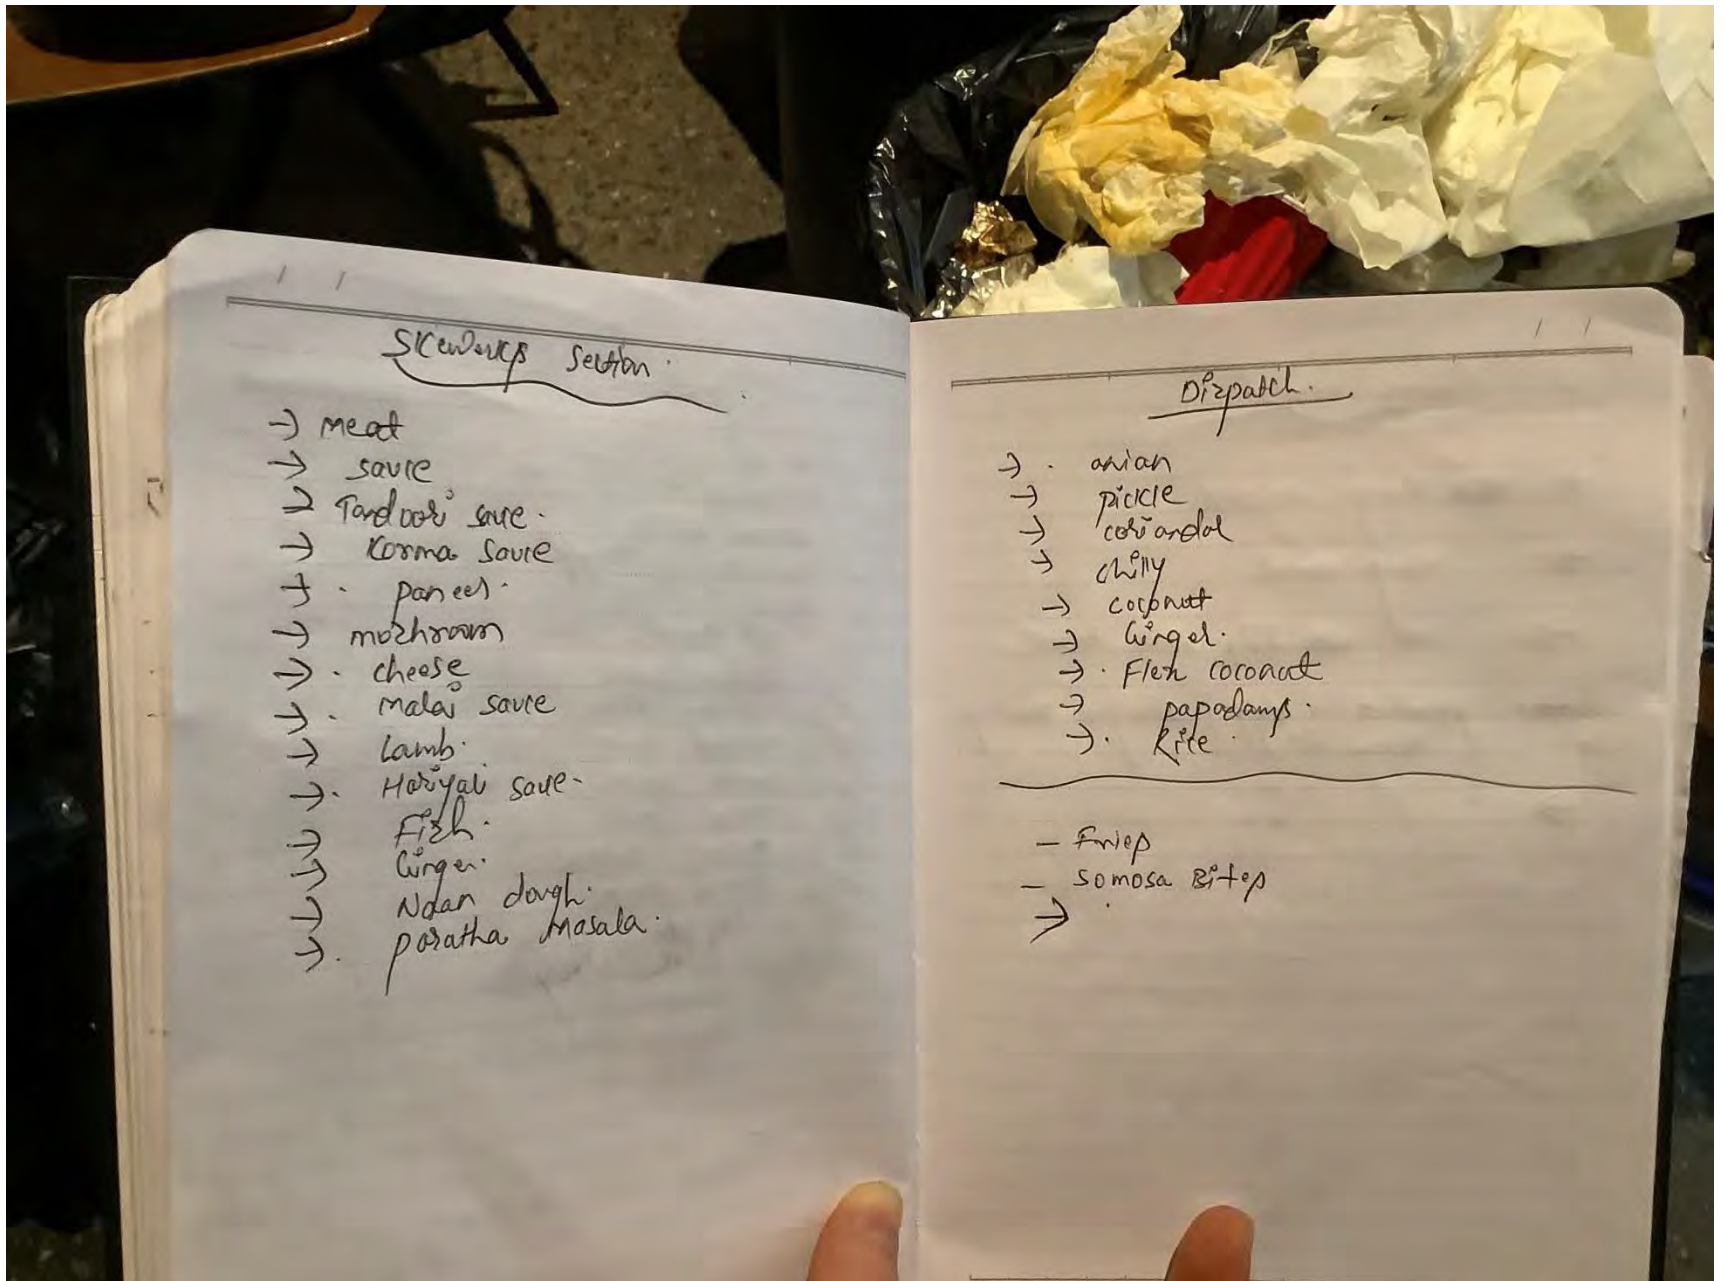 Skewerks Section.
→ Meat
→ Sauce
→ Tandoori saue.
→ Korma Sauce
→ . paneer.
→ moshroom
→ . cheese
→ . malai sauce
→ Lamb.
→ . Hariyali saue.
→ Fish.
→ Ginger.
→ Naan dough.
→ . paratha Masala.
Dispatch.
→ . onian
→ pickle
→ coriandar
→ chilly
→ coconut
→ Ginger.
→ . Flex coconut
→ papadams.
→ . Rice.
- Fries
- Somosa Bites
→ .